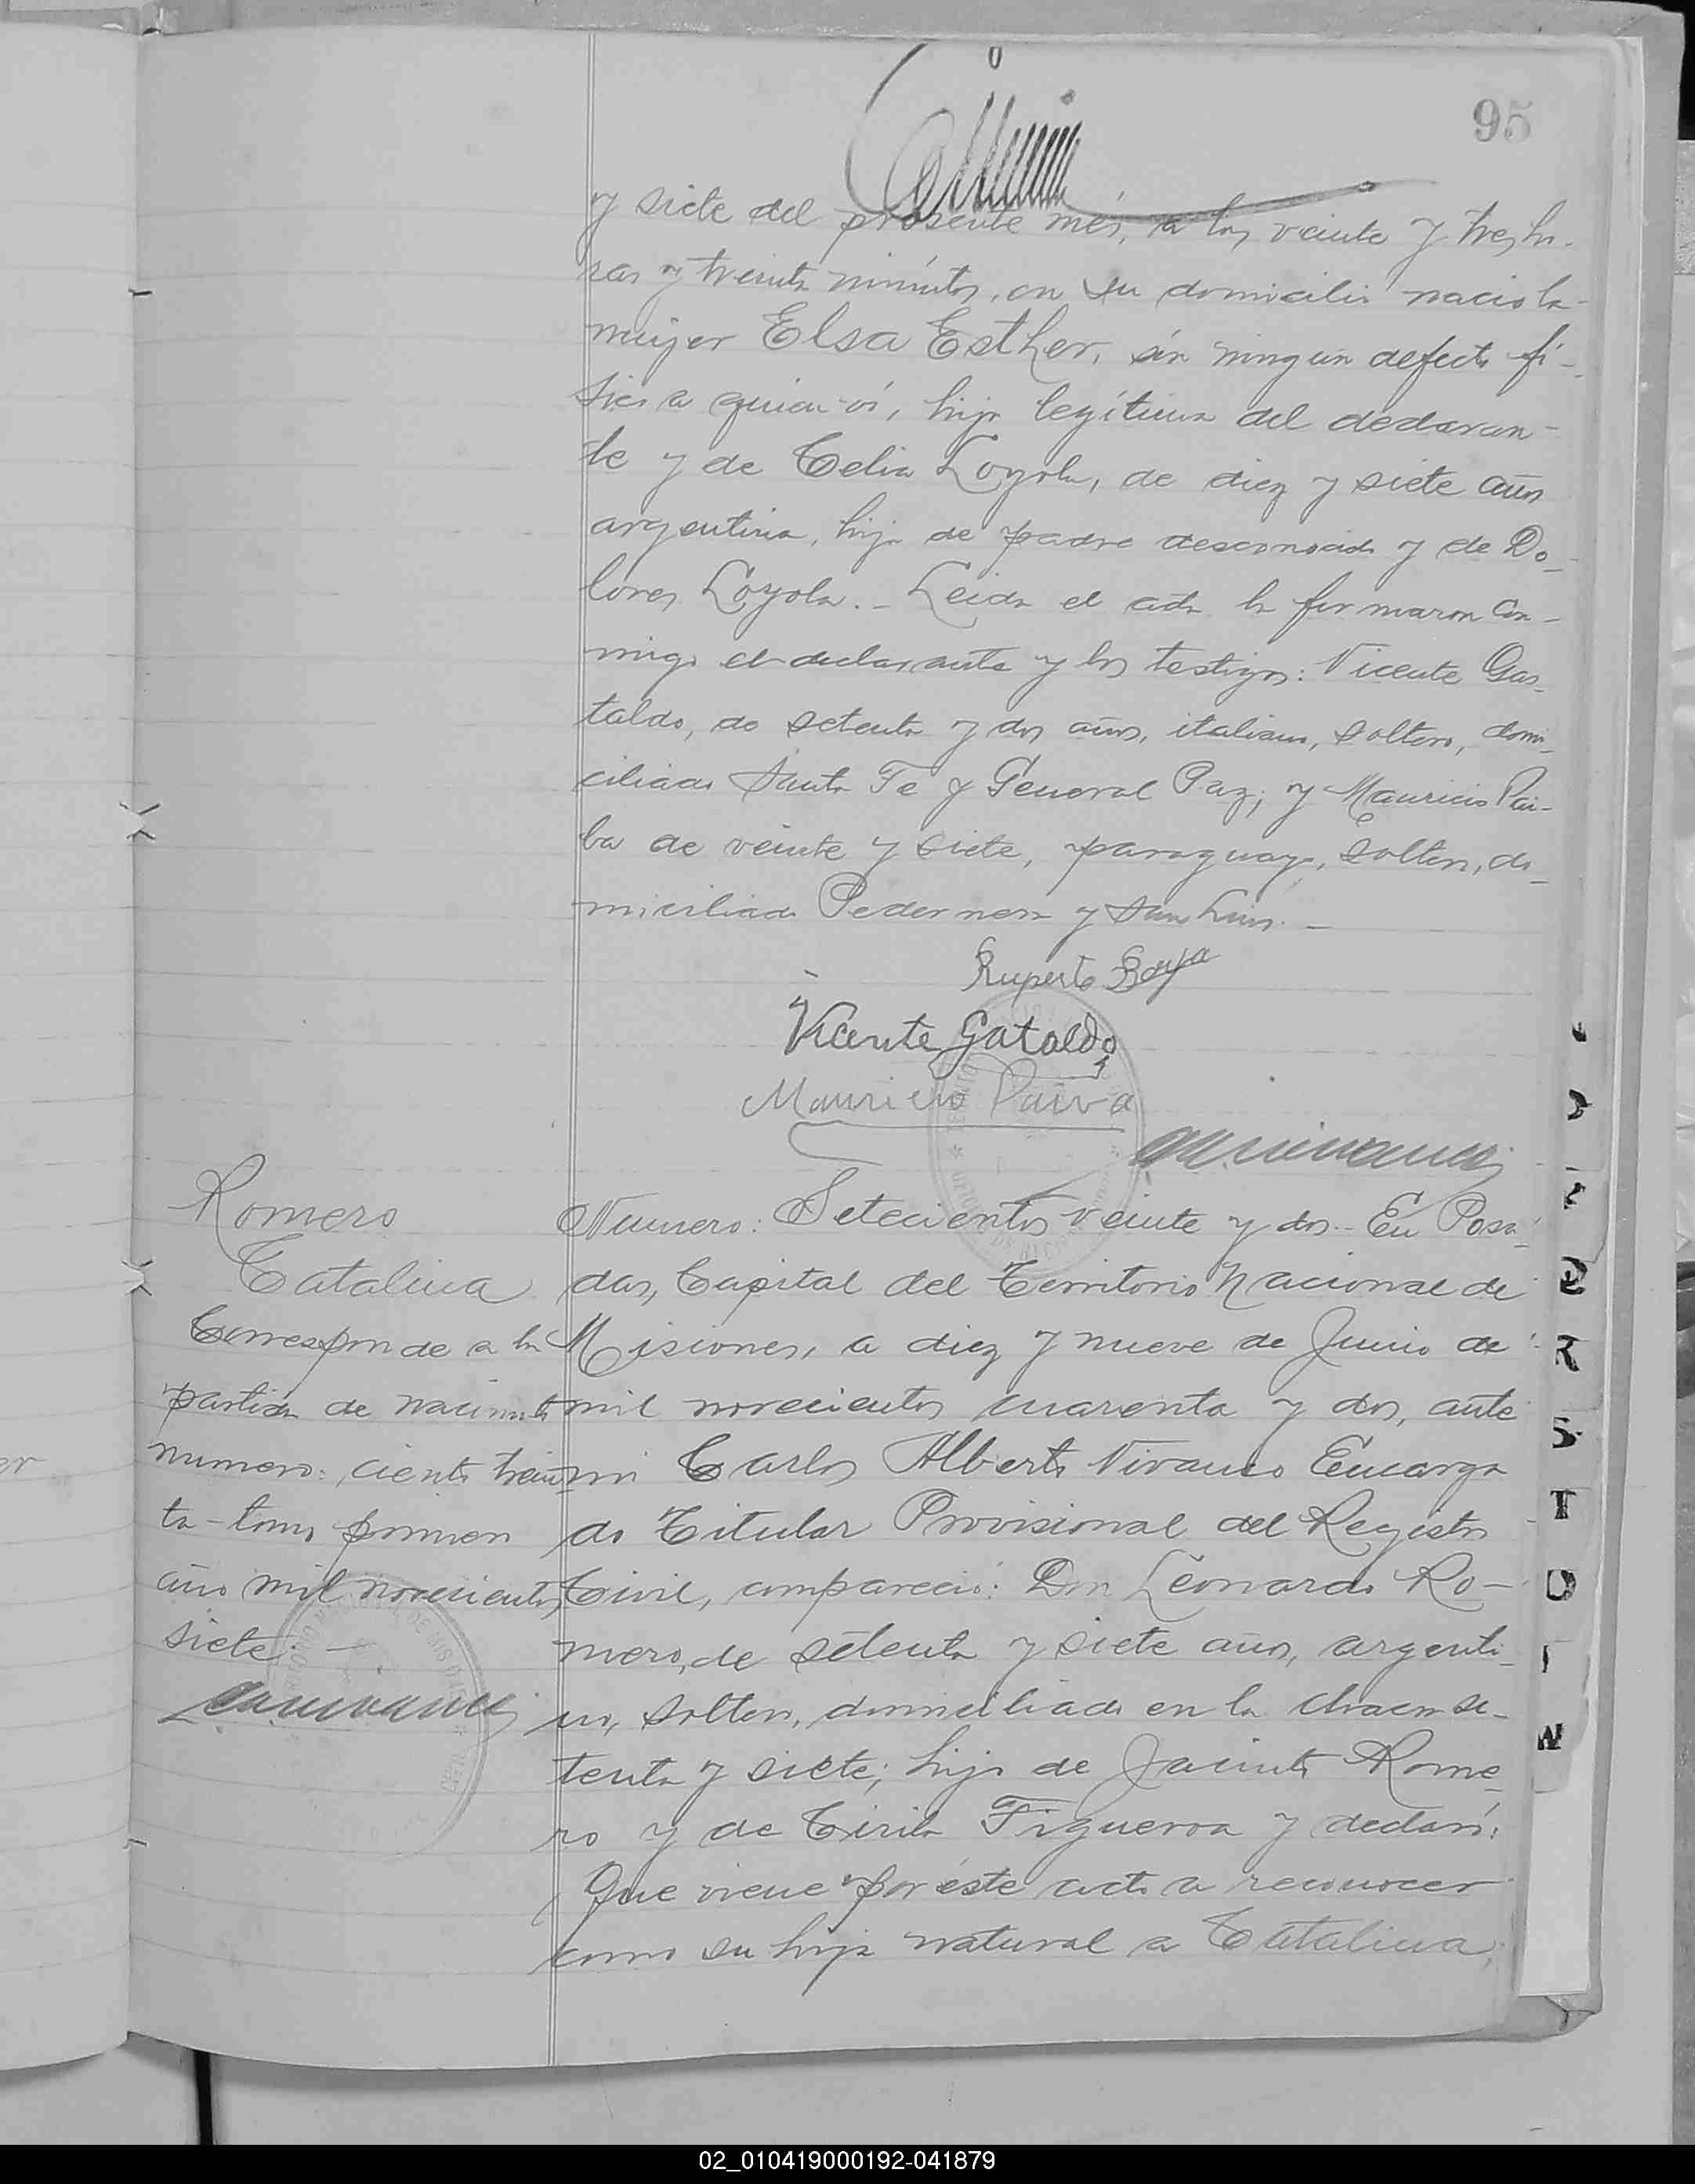 95
y siete del presente més, a las veinte y tres ho-
ras y treinta minutos, en su domicilio nacio la
mujer Elsa Esther, sin ningun defecto fí-
sico a quien ví, hija legítima del declaran-
te y de Celia Loyola, de diez y siete años
argentina, hija de padre desconocido y de Do-
lores Loyola.- Leida el acta la firmaron con-
migo el declarante y los testigos: Vicente Gas-
taldo, de setenta y dos años, italiano, soltero, domi-
ciliado Santa Fe y General Paz; y Mauricio Pai-
ba de veinte y siete, paraguayo, soltero, do-
miciliado Pedernera y San Luis.-
Ruperto Boya
Vicente Gataldo
Mauricio Paiva
Romero
Catalina
Corresponde a la
partida de nacimiento
numero: ciento trein-
ta-tomo primero
año mil novecientos
siete.-
Numero: Setecientos veinte y dos.- En Posa-
das, Capital del Territorio Nacional de
Misiones, a diez y nueve de Junio de
mil novecientos cuarenta y dos, ante
mi Carlos Alberto Vivanco Encarga
do Titular Provisional del Registro
Civil, compareció: Don Leonardo Ro-
mero, de setenta y siete años, argenti-
no, soltero, domiciliado en la chacra se-
tenta y siete; hijo de Jacinto Rome-
ro y de Cirila Figueroa y declaró:
Que viene por éste acto a reconocer
como su hija natural a Catalina,
R
S
T
U
W
02_010419000192-041879